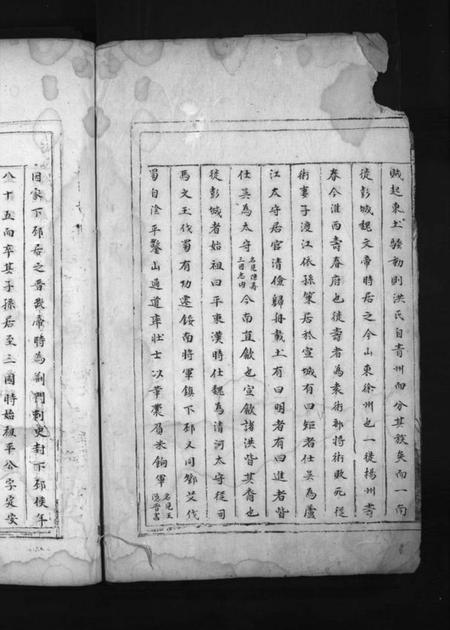 賊起東土騷動則洪氏自青州而分其族矣而一南
徙彭城魏文帝時居之今山東徐州也一徙揚州壽
春今淮西壽春府也徙壽者為袁術部將術敗死從
術妻子渡江依孫策居於宣城有曰矩者仕吳為廬
江太守居官清儉歸舟載土有曰明者有曰進者皆
仕吳為太守名見陳壽三國志內今南直歙也宣歙諸洪皆其裔也
徙彭城者始祖曰平東漢時仕魏為清河太守從司
馬文王伐蜀有功遷綏南將軍鎮下邳又同鄧艾伐
蜀自陰平鑿山通道率壯士以葦裹眉米餉軍名見王隱晉書
因家下邳居之晉武帝時為荊門刺史封下邳侯年
八十五而卒其子孫居至三國時始祖平公字定安